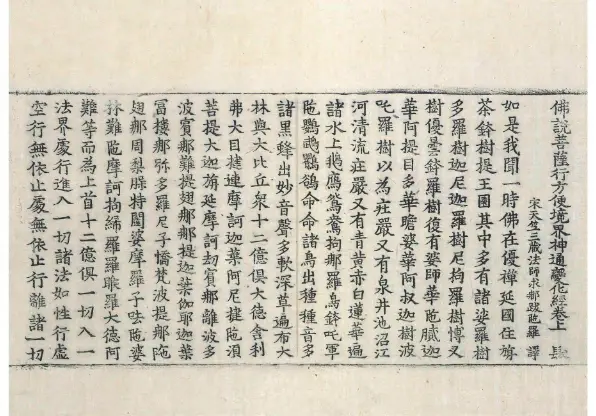 佛說菩薩行方便境界神通變化經卷上 肆
宋天竺三藏法師求那跋陁羅 譯
如是我聞一時佛在優禪延國住旃
荼鉢樹提王園其中多有諸娑羅樹
多羅樹迦尼迦羅樹尼拘羅樹博叉
樹優曇鉢羅樹復有婆師華陁膩迦
華阿提目多華瞻婆華阿叔迦樹波
吒羅樹以為莊嚴又有泉井池沼江
河清流莊嚴又有青黄赤白蓮華遍
諸水上鵝鴈鴛鴦拘那羅鳥鉢吒軍
陁鸚鵡鸜鵒命命諸鳥出種種音多
諸黑蜂出妙音聲多軟深草遍布大
林與大比丘衆十二億俱大德舍利
弗大目揵連摩訶迦葉阿尼揵陁湏
菩提大迦旃延摩訶劫賓那離波多
波賓那難提翅那那提迦葉伽耶迦葉
富樓那弥多羅尼子憍梵波提那陁
翅那周梨膵特闥婆摩羅子呿陁婆
林難陁摩訶拘絺羅羅睺羅大德阿
難等而為上首十二億俱一切入一
法界處行進入一切諸法如性行虛
空行無依止處無依止行離諸一切